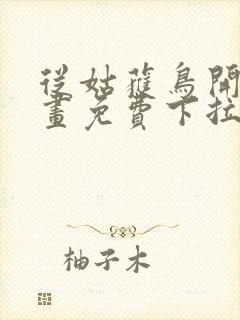 從姑蘿鳥開
畫免費下拉
柚子木